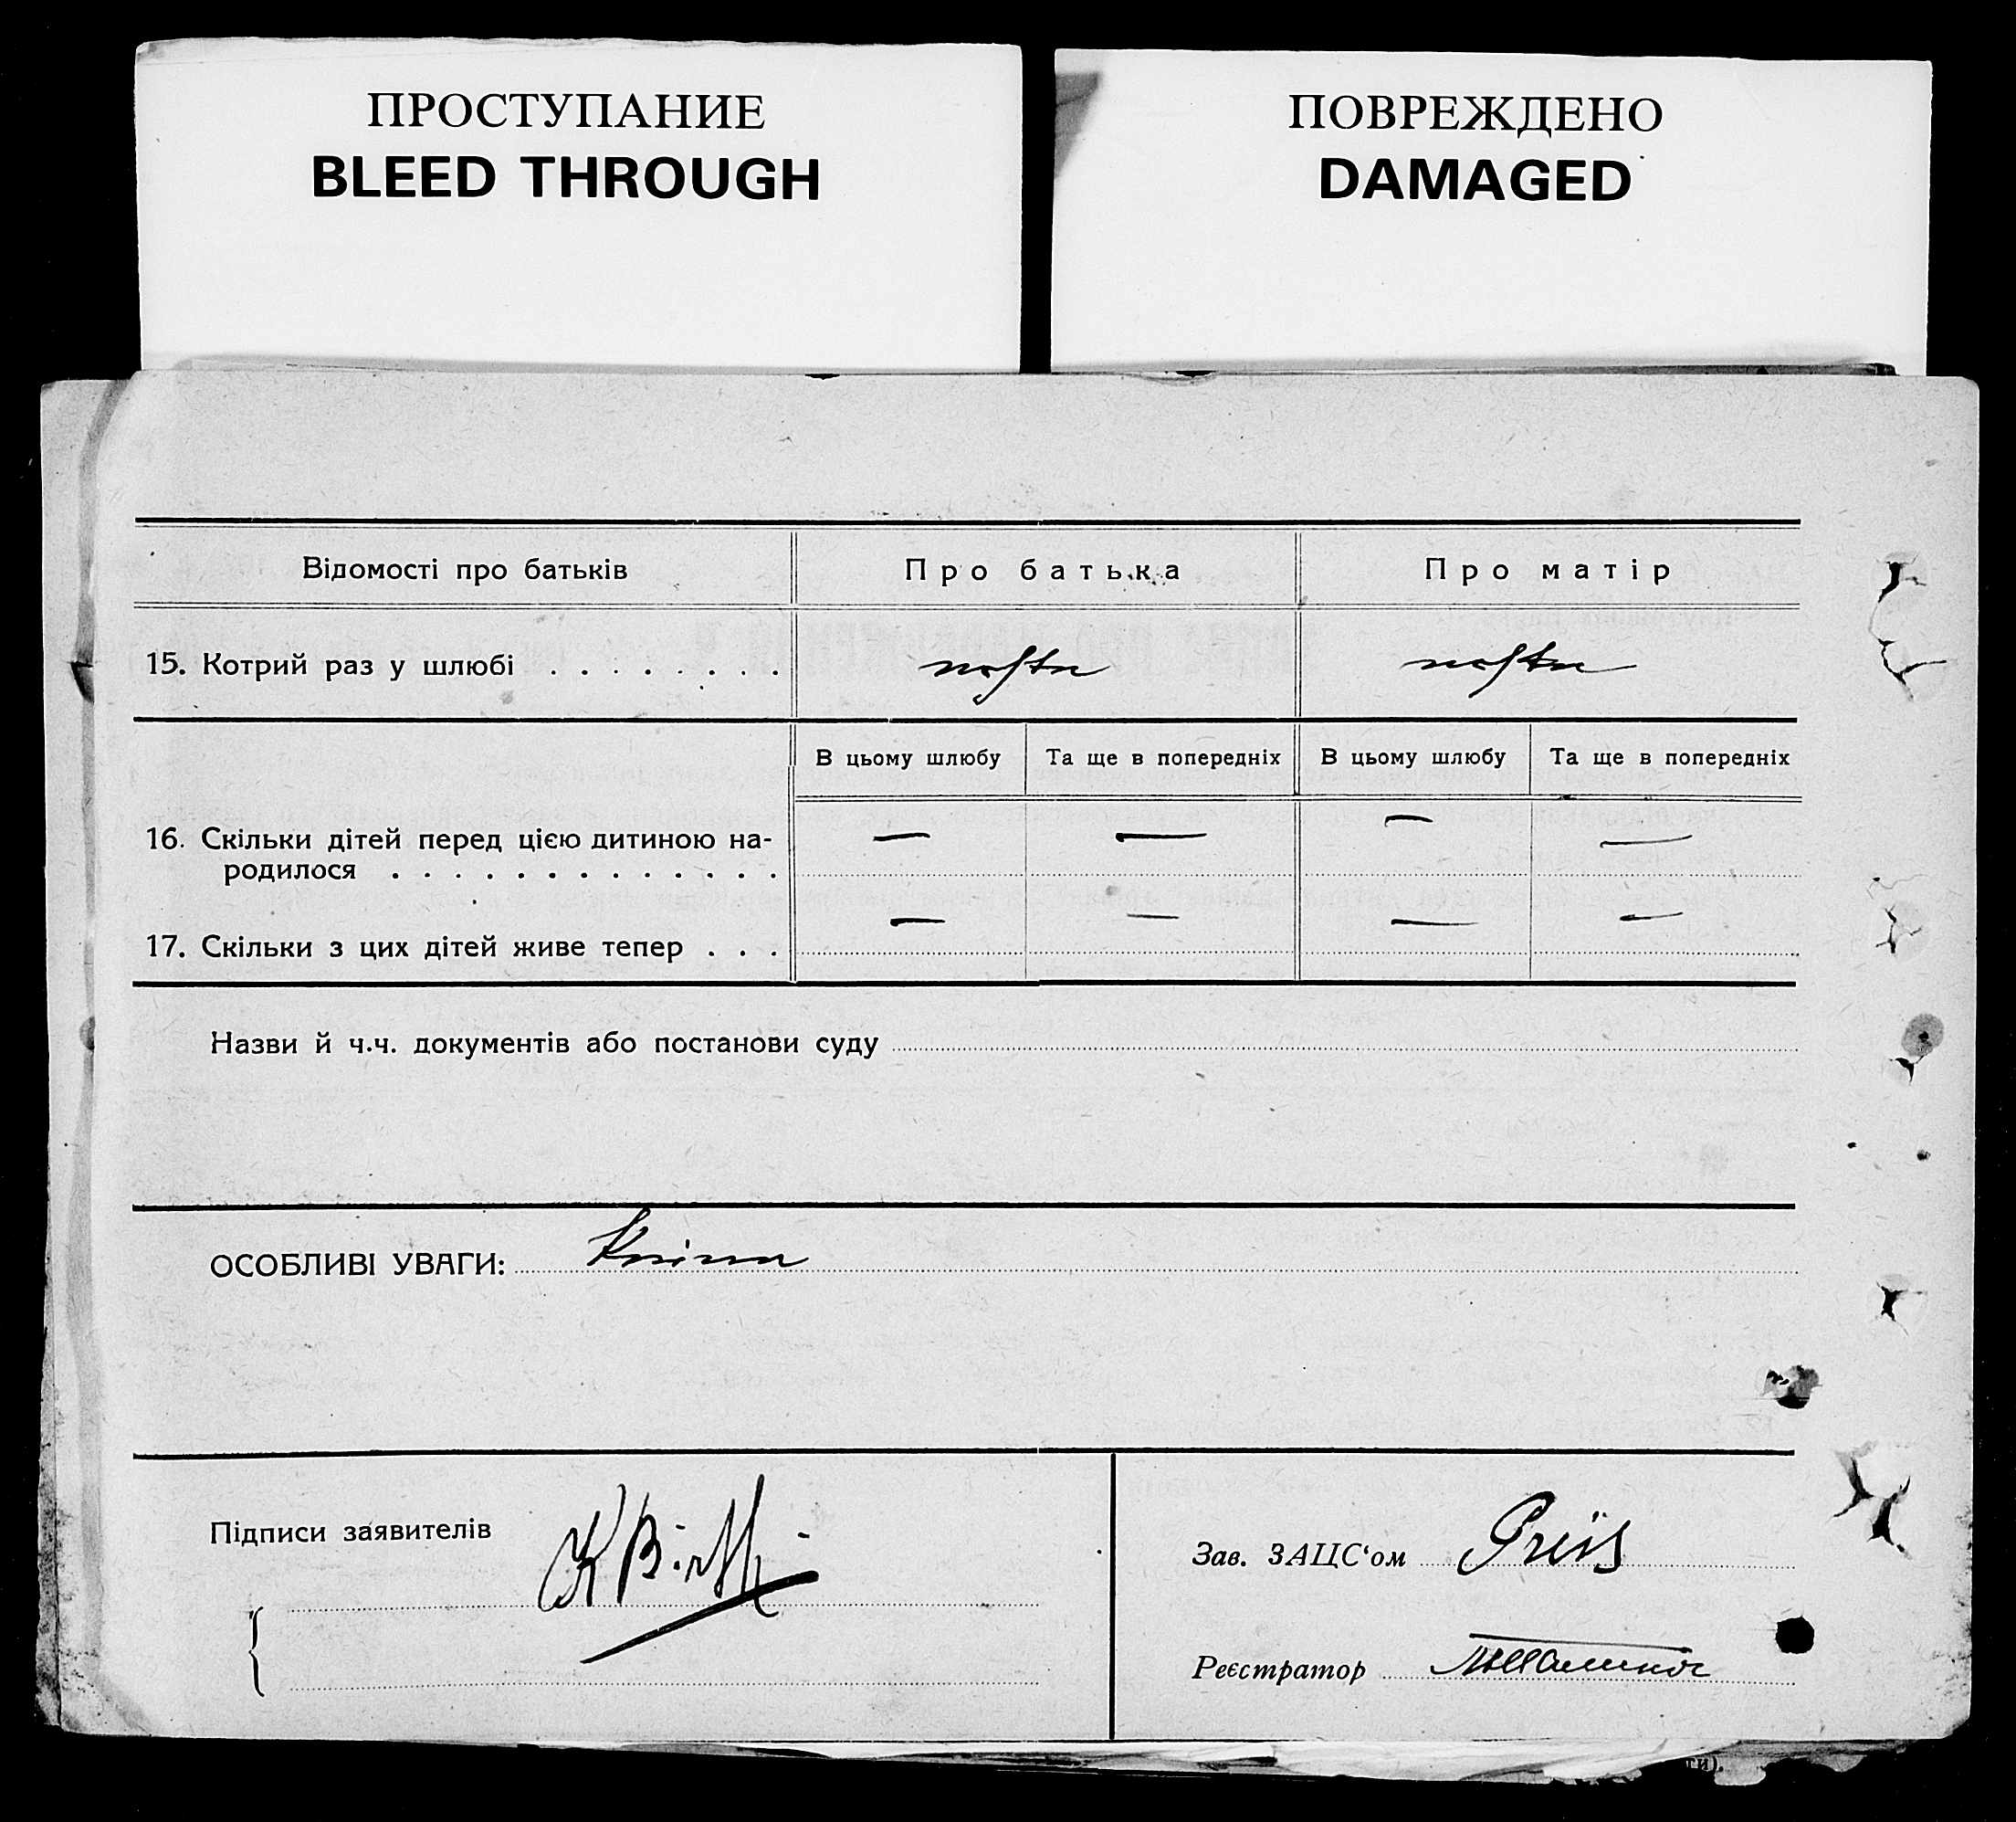 ПРОСТУПАНИЕ
BLEED THROUGH
ПОВРЕЖДЕНО
DAMAGED
Відомості про батьків
Про батька
Про матір
15. Котрий раз у шлюбі . . . . . . . .
В цьому шлюбу
Та ще в попередніх
В цьому шлюбу
Та ще в попередніх
16. Скільки дітей перед цією дитиною на-
— — — —
родилося . . . . . . . . . . . . .
17. Скільки з цих дітей живе тепер . . .
— — — —
Назви й ч.ч. документів або постанови суду
ОСОБЛИВІ УВАГИ:
Підписи заявителів
Зав. ЗАЦС‘ом Preis
Реєстратор